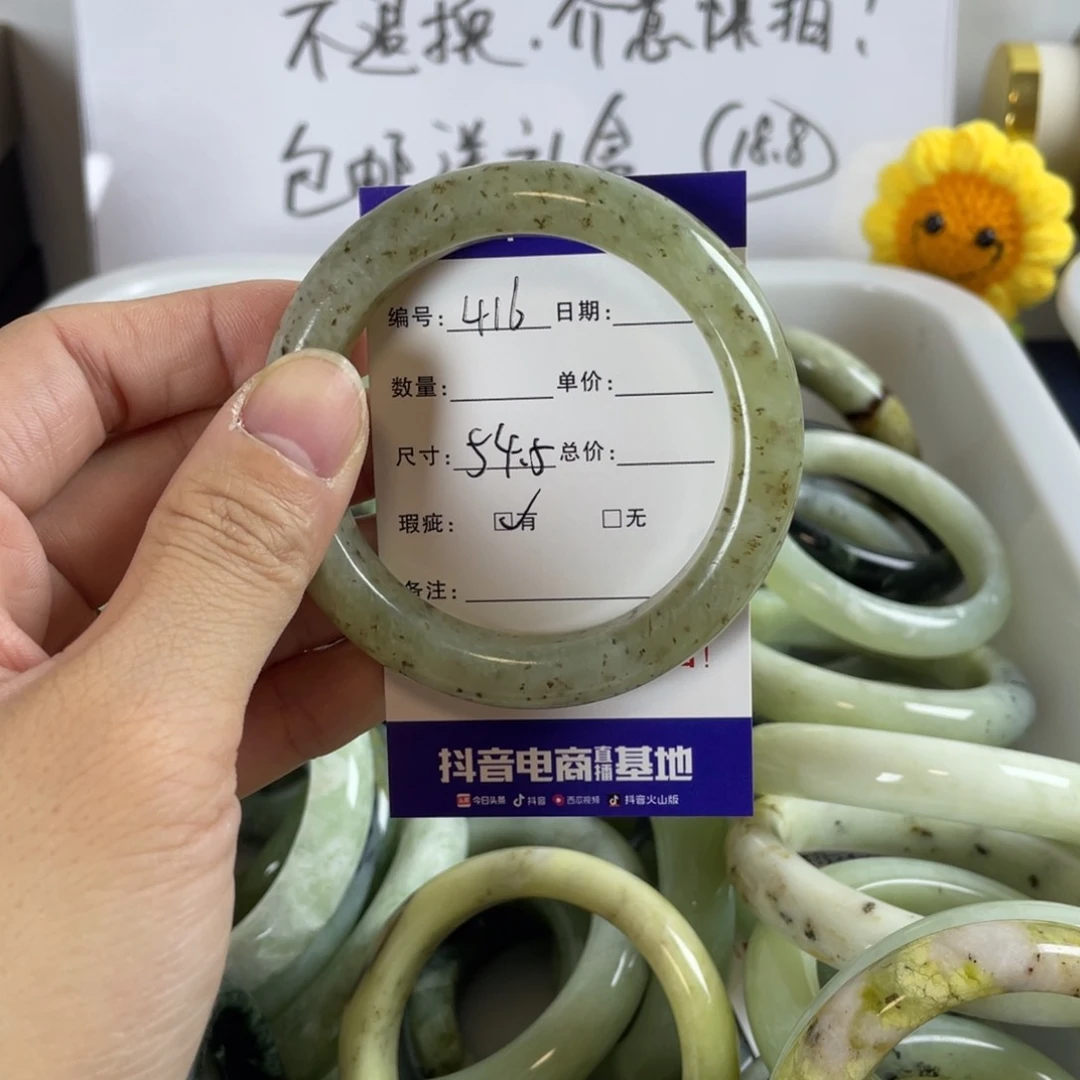 不退换.介意慎拍!
包邮送礼盒 (18.8)
编号: 416 日期:
数量: 单价:
尺寸: 54.5 总价:
瑕疵: ☑有 □无
备注:
!
抖音电商直播基地
今日头条 抖音 西瓜视频 抖音火山版